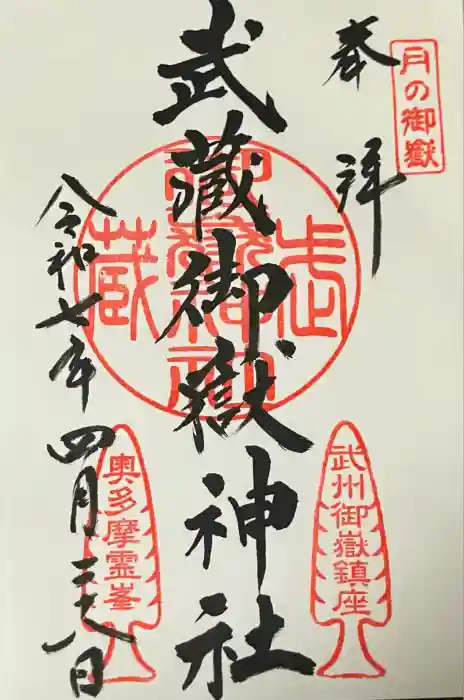 月の御嶽
奉拝
武蔵御嶽神社
武州御嶽鎮座
奥多摩霊峯
令和七年四月二十八日